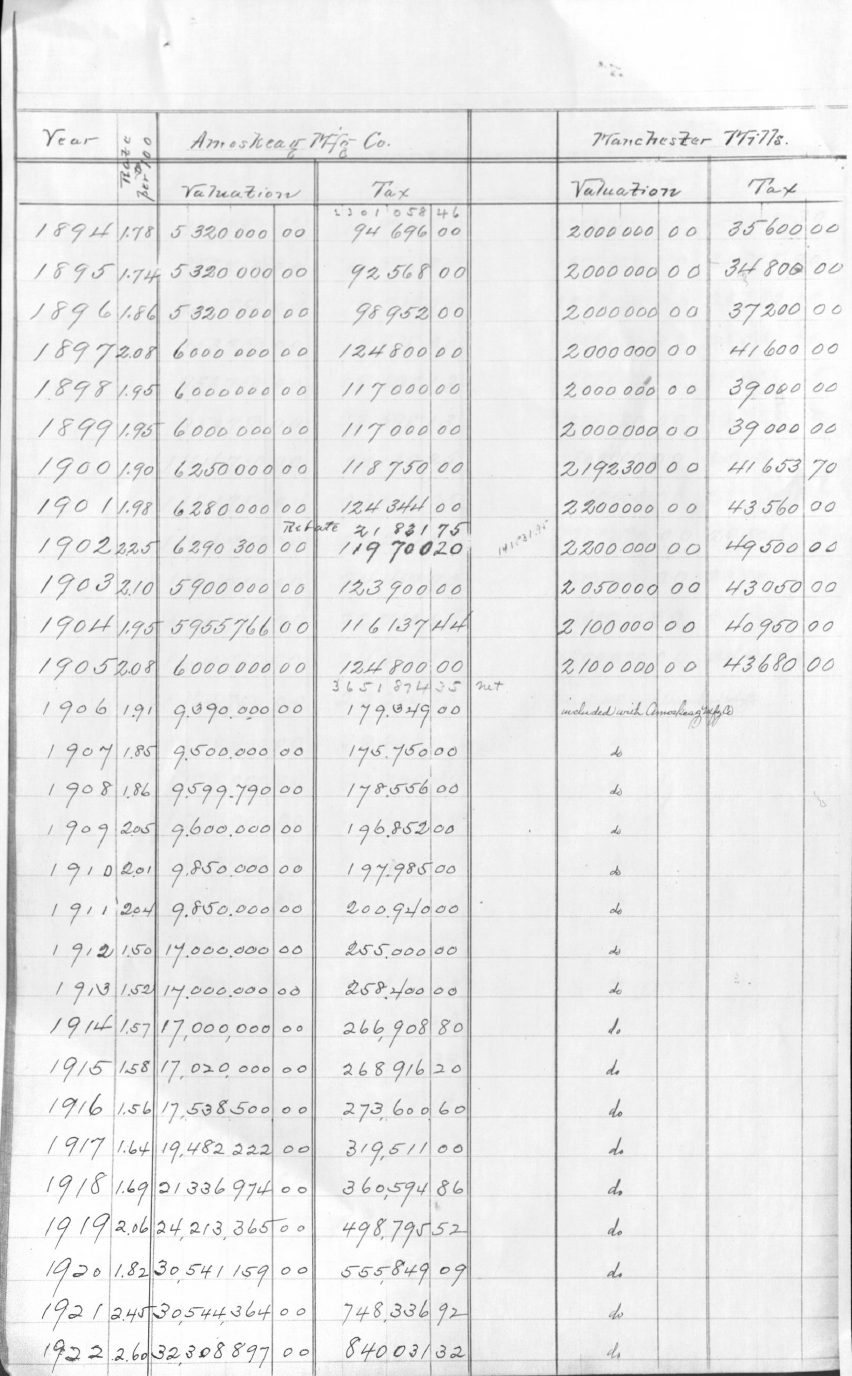 Year Rate per $100 Amoskeag M'f'g Co. Manchester Mills.
Valuation Tax Valuation Tax
2301058 46
1894 1.78 5320000 00 94696 00 2000000 00 35600 00
1895 1.74 5320000 00 92568 00 2000000 00 34800 00
1896 1.86 5320000 00 98952 00 2000000 00 37200 00
1897 2.08 6000000 00 124800 00 2000000 00 41600 00
1898 1.95 6000000 00 117000 00 2000000 00 39000 00
1899 1.95 6000000 00 117000 00 2000000 00 39000 00
1900 1.90 6250000 00 118750 00 2192300 00 41653 70
1901 1.98 6280000 00 124344 00 2200000 00 43560 00
Rebate 21831 75
1902 2.25 6290300 00 119700 20 2200000 00 49500 00
1903 2.10 5900000 00 123900 00 2050000 00 43050 00
1904 1.95 5955766 00 116137 44 2100000 00 40950 00
1905 2.08 6000000 00 124800 00 2100000 00 43680 00
3651874 35 net
1906 1.91 9.390.000 00 179.349 00 included with Amoskeag Mfg Co
1907 1.85 9.500.000 00 175.750 00 do
1908 1.86 9.599.790 00 178.556 00 do
1909 2.05 9.600.000 00 196.852 00 do
1910 2.01 9.850.000 00 197.985 00 do
1911 2.04 9.850.000 00 200.940 00 do
1912 1.50 17.000.000 00 255.000 00 do
1913 1.52 17.000.000 00 258.400 00 do
1914 1.57 17,000,000 00 266,908 80 do
1915 1.58 17,020,000 00 268916 20 do
1916 1.56 17,538,500 00 273,600,60 do
1917 1.64 19,482 222 00 319,511 00 do
1918 1.69 21336974 00 360,594 86 do
1919 2.06 24,213,365 00 498,795 52 do
1920 1.82 30,541 159 00 555,849 09 do
1921 2.45 30,544,364 00 748,336 92 do
1922 2.60 32,308 897 00 840031 32 do